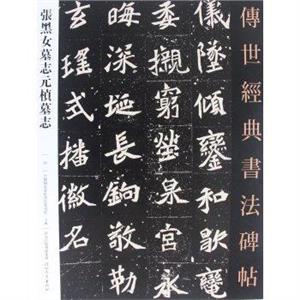 傳世經典書法碑帖
儀墜傾鑾和歇鸞
委櫬窮塋泉宮永
晦深埏長銷敬勒
玄瑤式播徽名
張黑女墓志元楨墓志